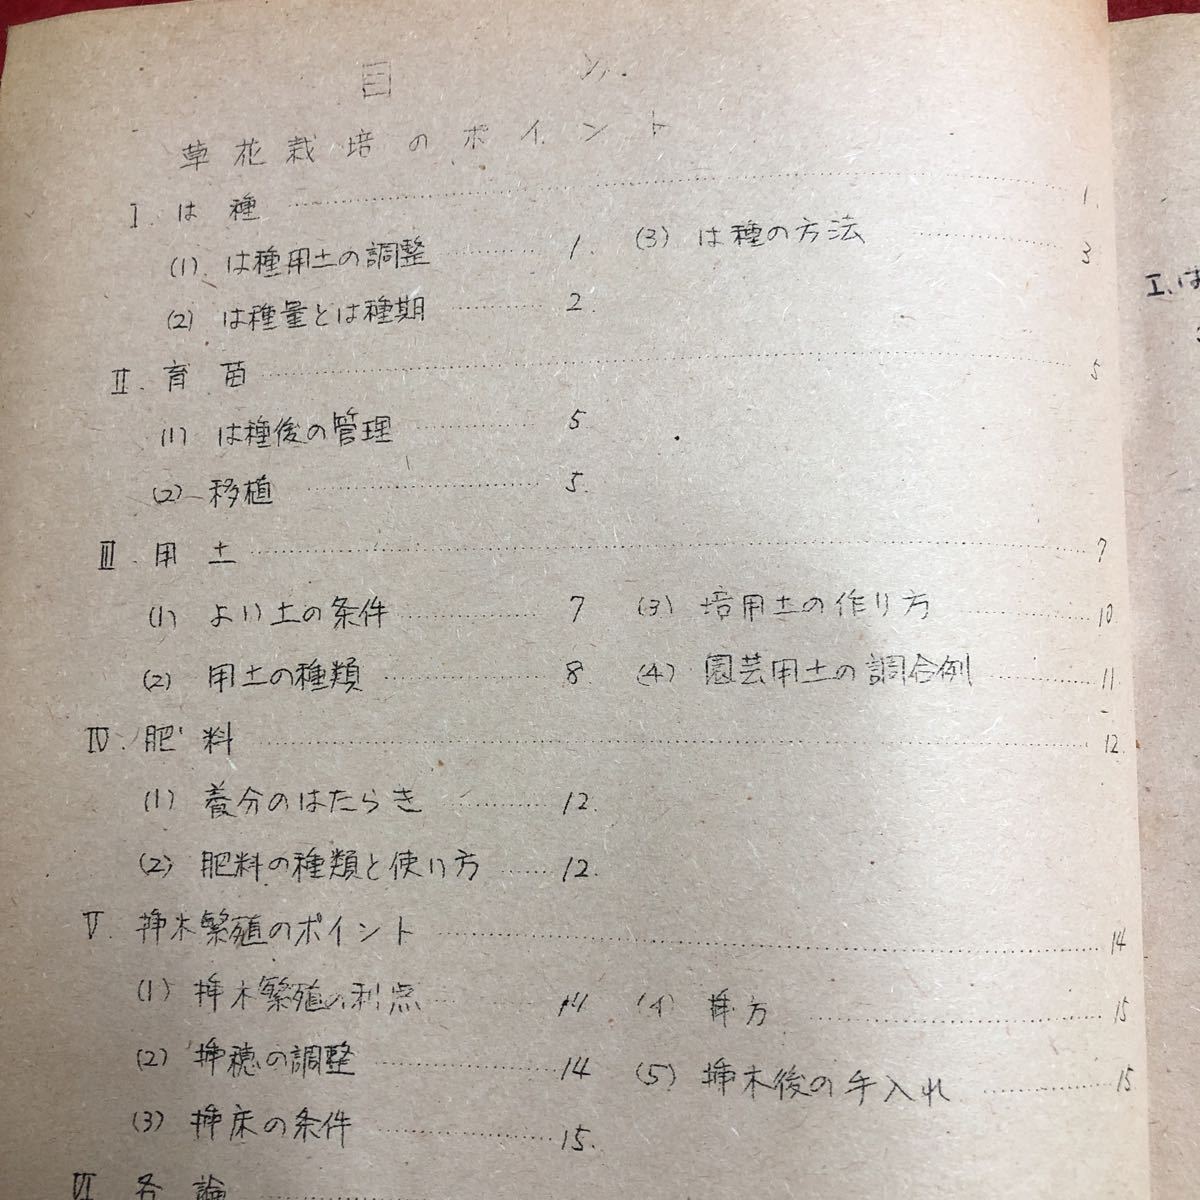 目 次
草花栽培のポイント
Ⅰ. は種 1.
(1) は種用土の調整 1. (3) は種の方法 3
(2) は種量とは種期 2.
Ⅱ. 育苗 5
(1) は種後の管理 5
(2) 移植 5.
Ⅲ 用土 7
(1) よい土の条件 7 (3) 培用土の作り方 10
(2) 用土の種類 8. (4) 園芸用土の調合例 11
Ⅳ. 肥料 12.
(1) 養分のはたらき 12.
(2) 肥料の種類と使い方 12.
Ⅴ. 挿木繁殖のポイント 14
(1) 挿木繁殖の利点 14 (4) 挿方 15
(2) 挿穂の調整 14 (5) 挿木後の手入れ 15
(3) 挿床の条件 15.
Ⅵ 各論
Ⅰ. は